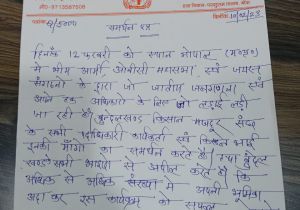 मो०-9713587508
दिनांक 10/02/23
समर्थन पत्र
दिनांक 12 फरवरी को स्थान भोपाल (म०प्र०)
में भीम आर्मी, ओबीसी महासभा एवं जयस
संगठनों के द्वारा जो जातीय जनगणना एवं
अपने हक अधिकारों के लिए जो लड़ाई लड़ी
जा रही है बुन्देलखण्ड किसान मजदूर संघ
के सभी पदाधिकारी कार्यकर्ता एवं किसान भाई
इनकी मांगों का समर्थन करते हैं तथा बुन्देल
खण्ड सभी से अपील करते हैं कि
अधिक से अधिक संख्या में अपनी भूमिका
अदा कर इस कार्यक्रम को सफल